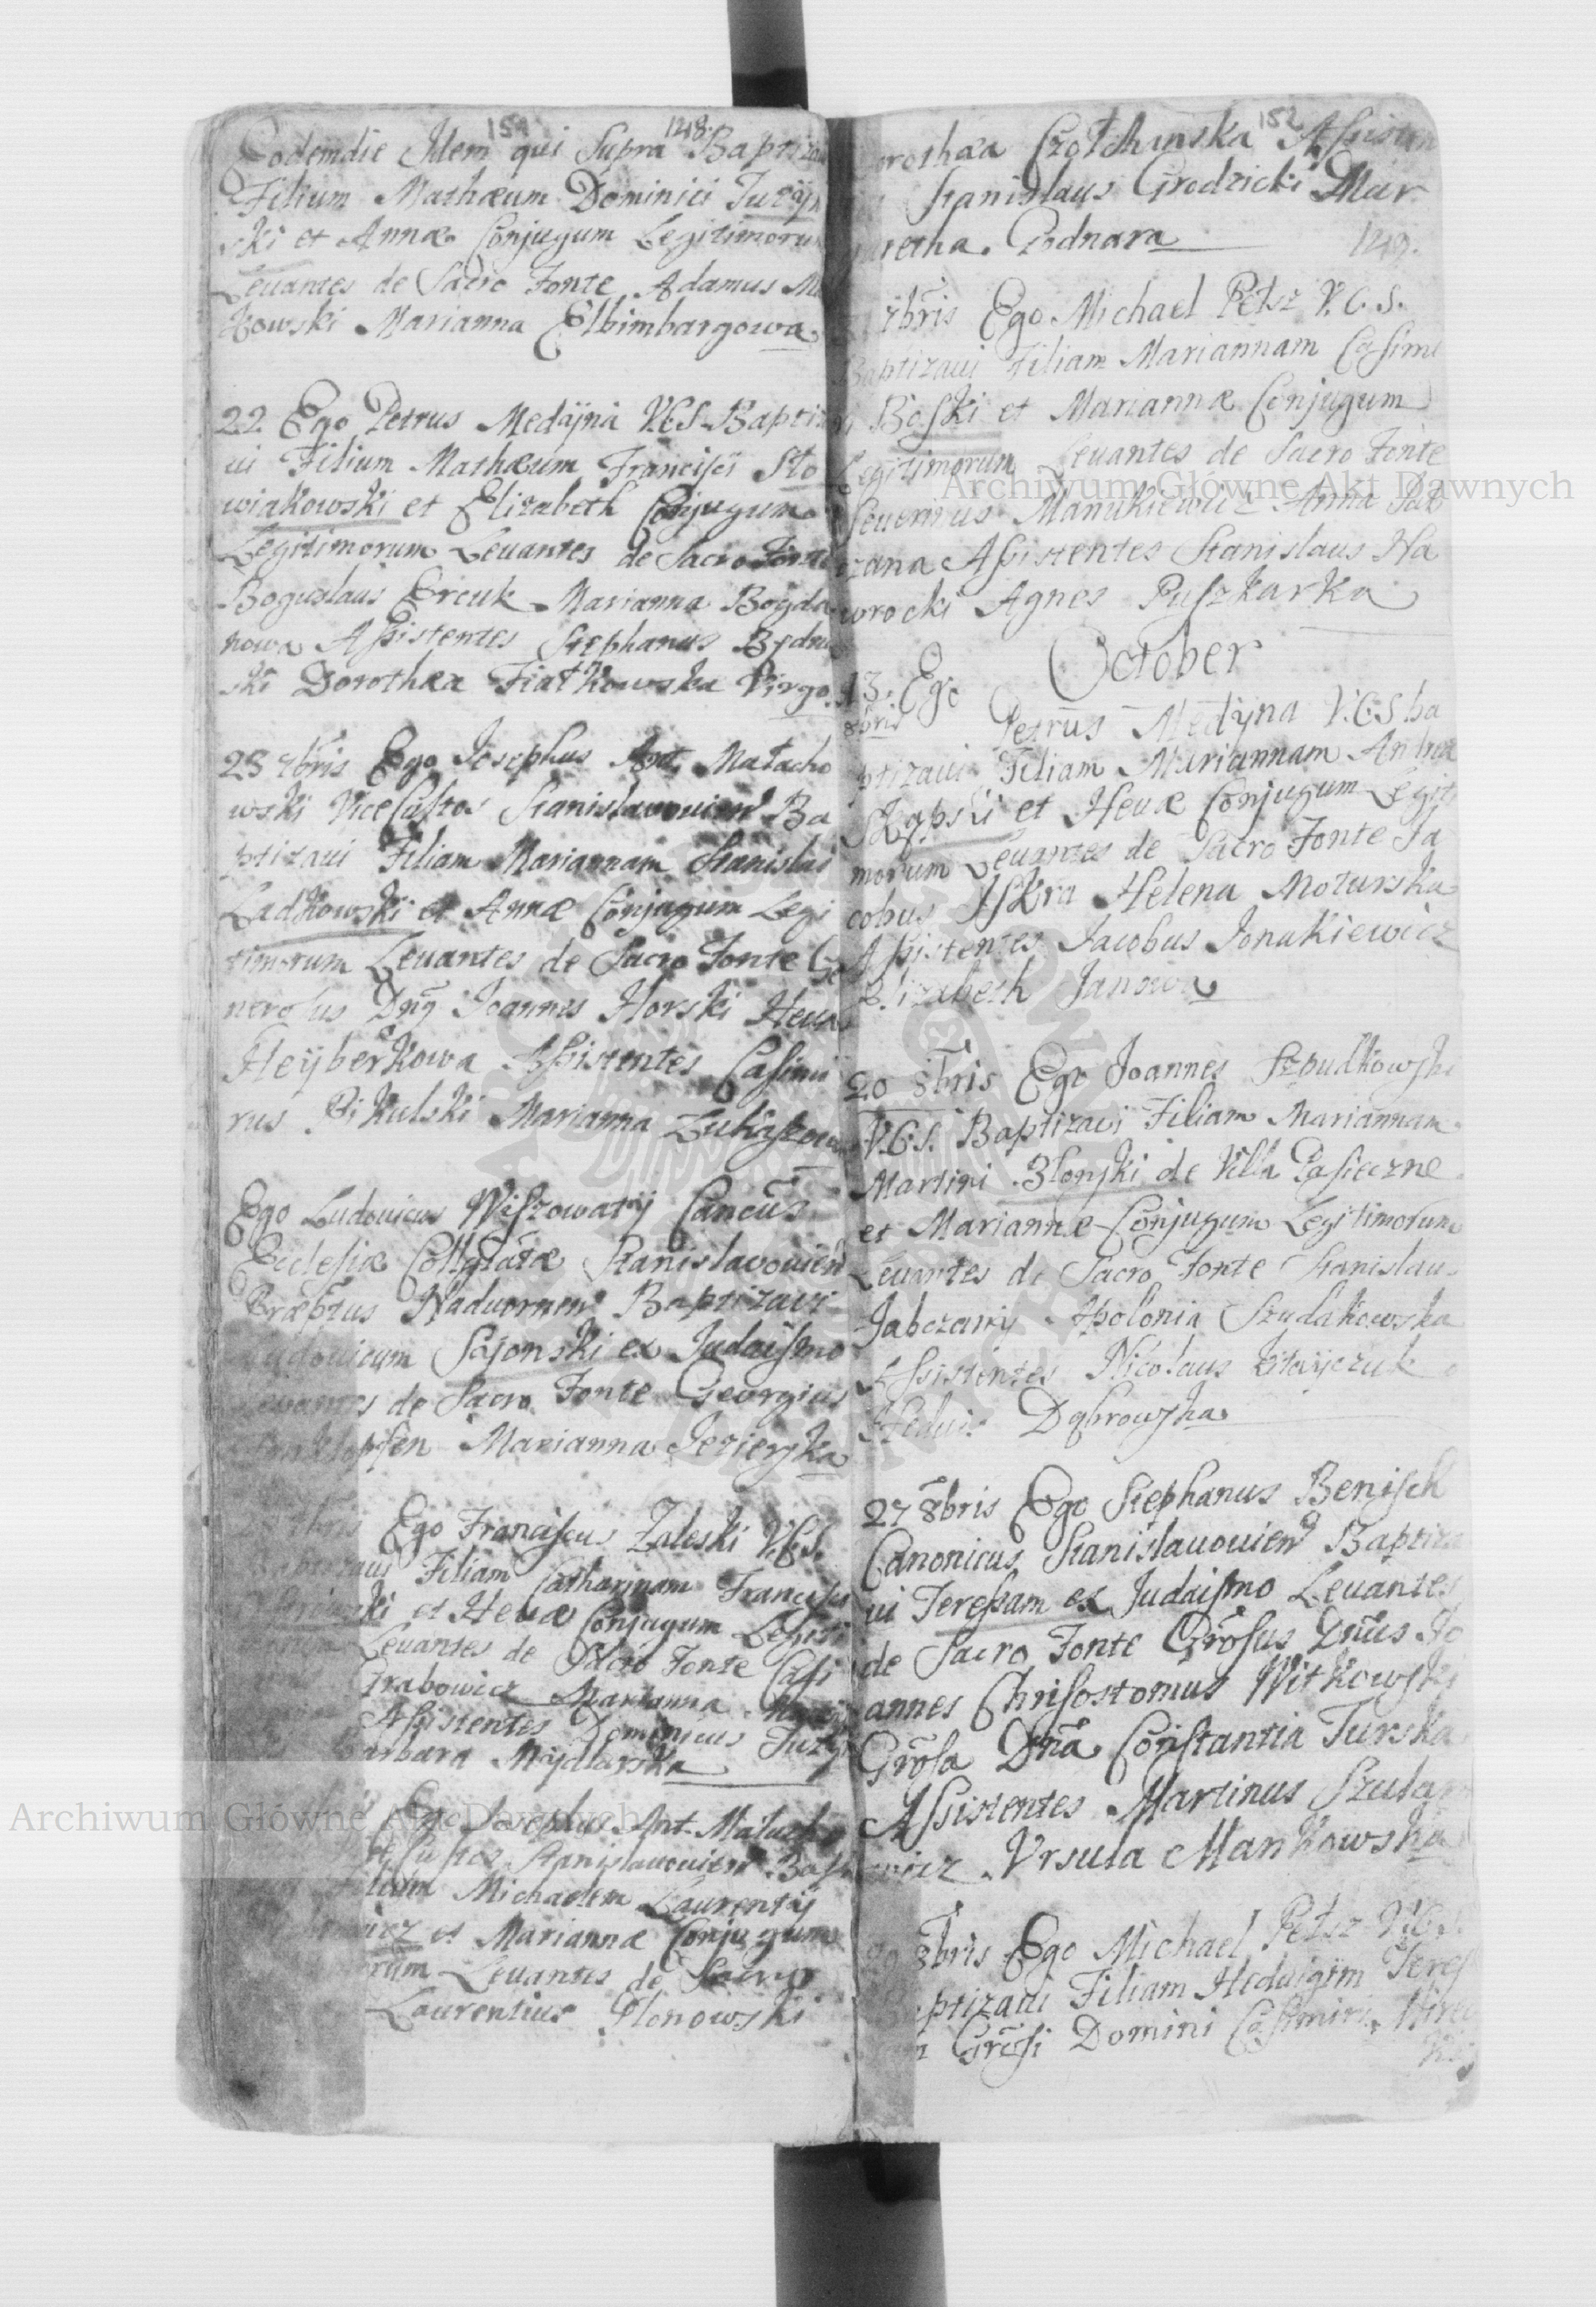 151 1218.
Eodemdie Idem qui Supra Baptiza
Filium Mathæum Dominici Juzÿn
ski et Annæ Conjugum Legitimorum
Levantes de Sacro Fonte Adamus Ma
kowski Marianna Elbimbargowa
22 Ego Petrus Medÿna V.C.S. Baptiza
ui Filium Mathæum Francisci Sło
wiakowski et Elizabeth Conjugum
Legitimorum Levantes de Sacro Fonte
Boguslaus Ercuk Marianna Bogda
nowa Assistentes Stephanus Bednar
ski Dorothæa Fiałkowska Virgo
23 7bris Ego Josephus Ant. Małacho
wski ViceCustos Stanislavovien Ba
ptizaui Filiam Mariannam Stanislai
Ladkowski et Annæ Conjugum Legi
timorum Levantes de Sacro Fonte Ge
nerosus Dnus Joannes Horski Heua
Heÿberkowa Assistentes Casimi
rus Pikulski Marianna Łukaszow
Ego Ludovicus Wiszowatÿ Cancus
Ecclesiæ Collgiatæ Stanislavovien
Præbtus Nadvornen Baptizavi
Ludovicum Sajonski ex Judaismo
Levantes de Sacro Fonte Georgius
Marianna Jezierska
7bris Ego Franciscus Zaleski V.C.S.
Baptizaui Filiam Catharinam Francisci
ski et Heuæ Conjugum Legiti
Levantes de Sacro Fonte Casi
Grabowicz Marianna
Assistentes Dominicus Juzÿ
Barbara Mÿdlarska
Ego Josephus Ant. Małacho
Custos Stanislavovien Bap
Filium Michaelem Laurentÿ
wicz et Mariannæ Conjugum
rum Levantes de Sacro
Laurentius Płonowski
152
orothæa Czołchanska Assisten
Stanislaus Grodzicki Mar
garetha Bodnara
1219.
7bris Ego Michael Petsz V.C.S.
Baptizaui Filiam Mariannam Casimi
ri Boski et Mariannæ Conjugum
Legitimorum Levantes de Sacro Fonte
Severinus Manukiewicz Anna Jab
czana Assistentes Stanislaus Na
wrocki Agnes Puszkarka
October
13. Ego
8bris Petrus Medÿna V.C.S ba
ptizaui Filiam Mariannam Andreæ
Skąpski et Heuæ Conjugum Legiti
morum Levantes de Sacro Fonte Ja
cobus Iskra Helena Moturska
Assistentes Jacobus Jonakiewicz
Elizabeth Janowa
20 8bris Ego Joannes Szpudkowski
V.C.S. Baptizavi Filiam Mariannam
Martini Błonski de Villa Pasieczne
et Mariannæ Conjugum Legitimorum
Levantes de Sacro Fonte Stanislaus
Jabczanÿ Apolonia Szudakowska
Assistentes Nicolaus Kitaÿczuk
Heduis Dąbrowska
27 8bris Ego Stephanus Benisch
Canonicus Stanislavovien Baptiza
ui Teressam ex Judaismo Levantes
de Sacro Fonte Grosus Dnus Jo
annes Chrisostomus Witkowski
Grosa Dna Constantia Turska
Assistentes Martinus Szulga
wicz Vrsula Mankowska
8bris Ego Michael Petsz V.C.S.
Baptizaui Filiam Heduigim Teres
Grosi Domini Casimiri
Archiwum Główne Akt Dawnych
Archiwum Główne Akt Dawnych